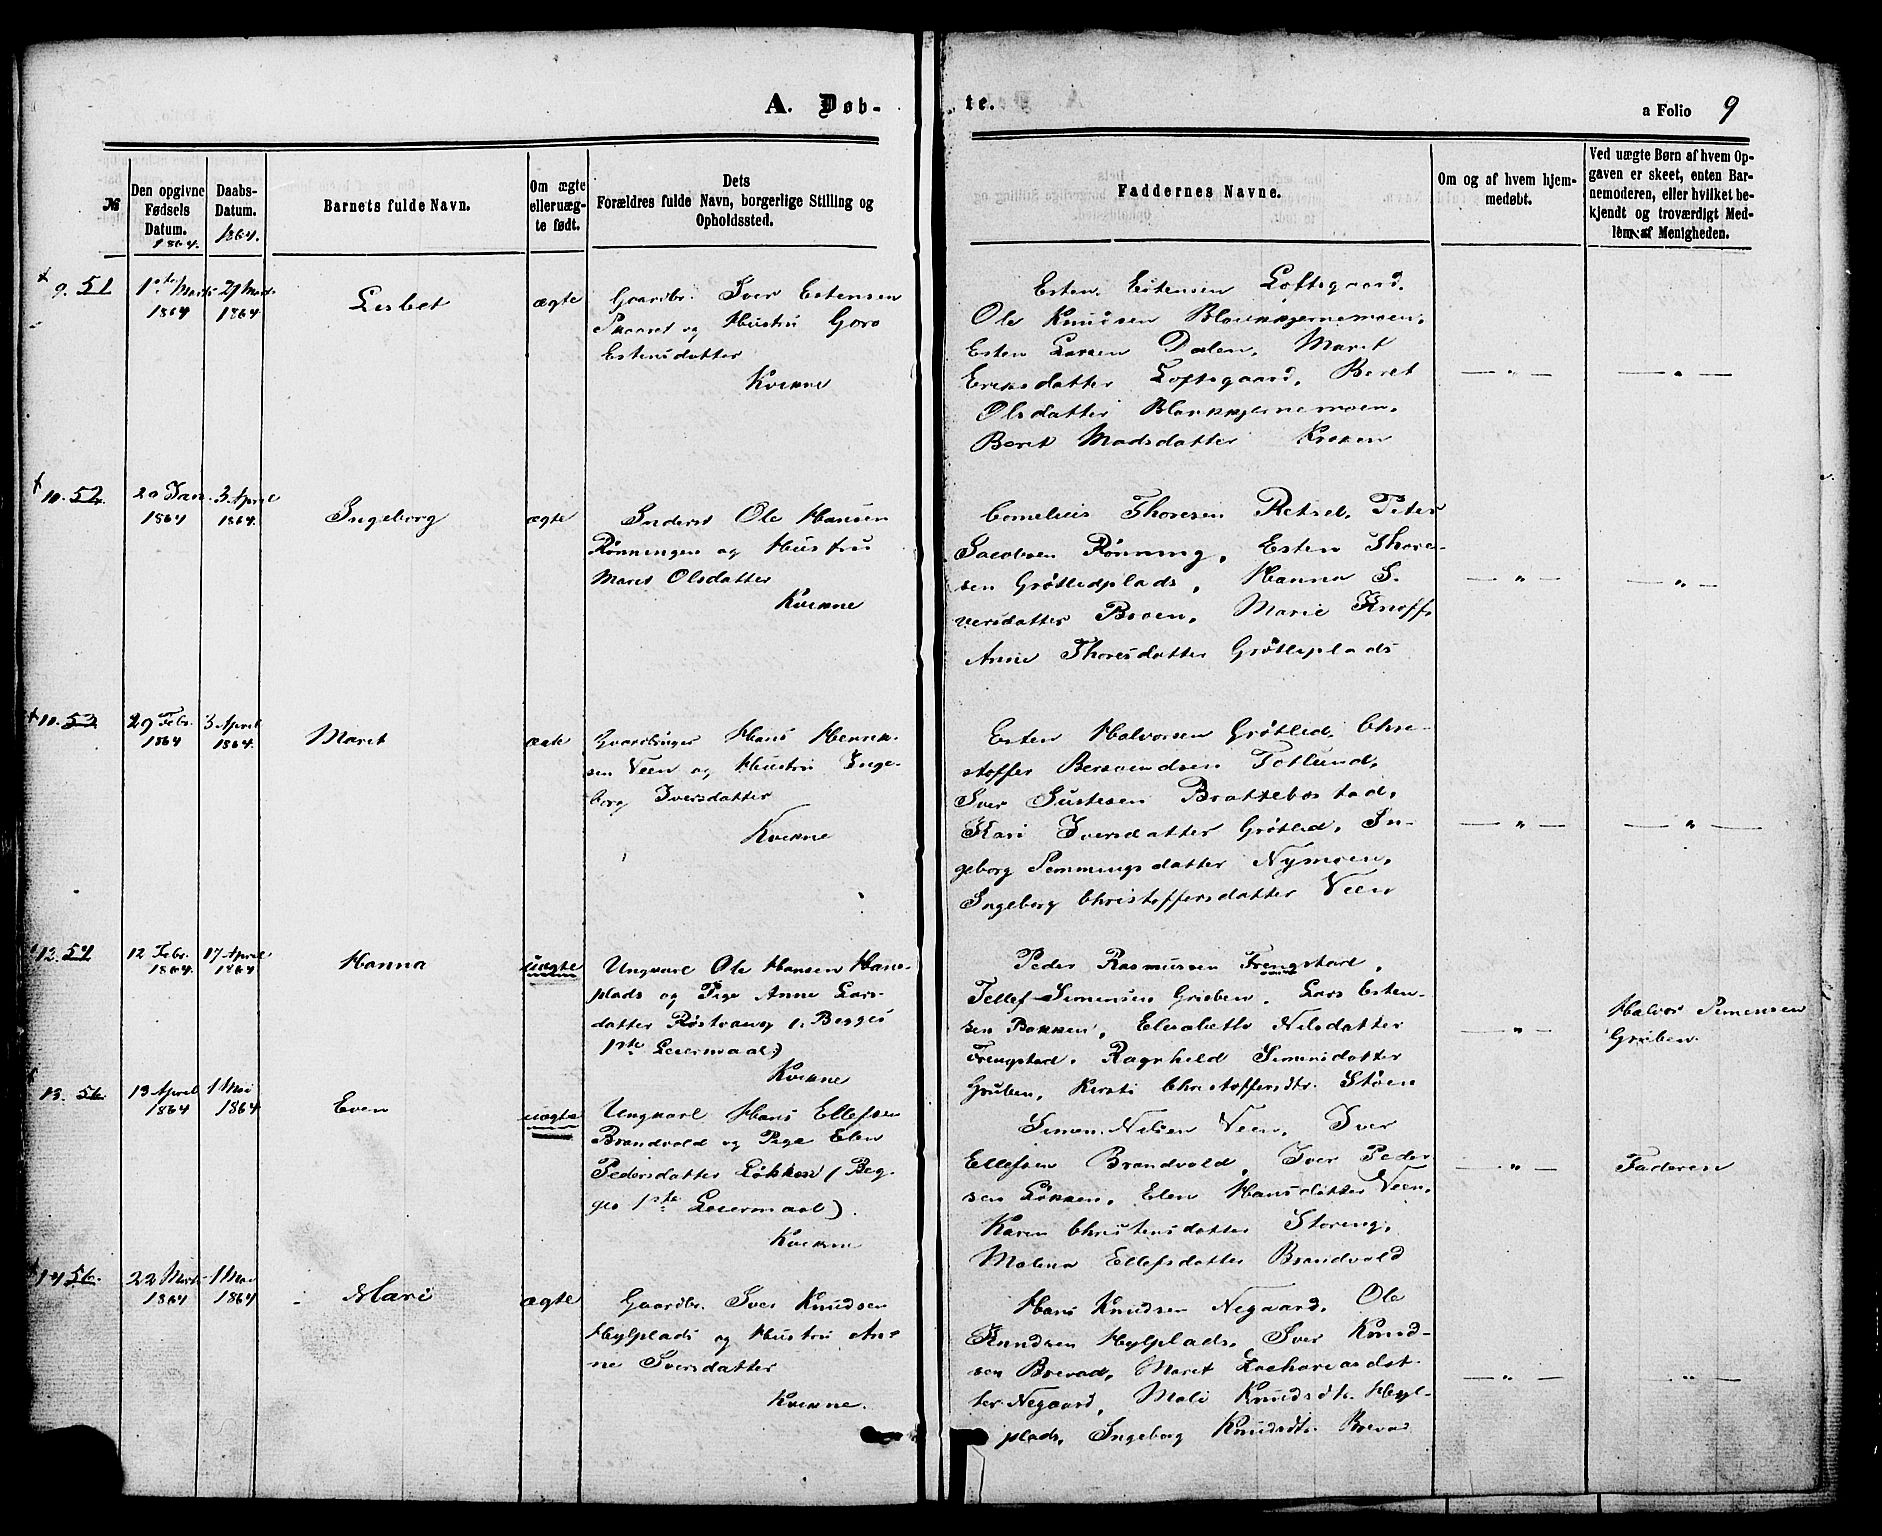 A. Døb-
te.
a Folio 9
№
Den opgivne Fødsels Datum. 1864.
Daabs-Datum. 1864.
Barnets fulde Navn.
Om ægte eller uægte født.
Dets Forældres fulde Navn, borgerlige Stilling og Opholdssted.
Faddernes Navne.
Om og af hvem hjemmedøbt.
Ved uægte Børn af hvem Opgaven er skeet, enten Barnemoderen, eller hvilket bekjendt og troværdigt Medlem af Menigheden.
9. 51
1ste Marts 1864
29 Marts 1864
Lisbet
ægte
Gaardbr. Iver Estensen
Skaaret og Hustru Goro
Estensdatter
Kvikne
Esten Estensen Loftsgaard,
Ole Knudsen Blankkjernemoen,
Esten Larsen Dalen, Marit
Eriksdatter Loftsgaard, Beret
Olsdatter Blankkjernemoen,
Beret Madsdatter Kroken
— " —
— " —
10. 52
20 Jan. 1864
3 April 1864.
Ingeborg
ægte
Inderst Ole Hansen
Rønningen og Hustru
Maret Olsdatter
Kvikne
Cornelius Thoresen Peder
Jacobsen Rønning, Esten Thore-
sen Grøtliedplads, Hanna I-
versdatter Broen, Marie Knoff,
Anne Thoresdatter Grøtliplads
— " —
— " —
10. 53
29 Febr. 1864
3 April 1864.
Maret
ægte
Gaardbruger Hans Henrik-
sen Veen og Hustru Inge-
borg Iversdatter
Kvikne
Esten Halvorsen Grøtlid, Chri-
stoffer Bersvendsen Totlund,
Iver Gustesen Brattebostad,
Kari Iversdatter Grøtlid, In-
geborg Semmingsdatter Nymoen,
Ingeborg Christoffersdatter Veen
— " —
— " —
12. 54
12 Febr. 1864
17 April 1864
Hanna
uægte
Ungkarl Ole Hansen Hans-
plads og Pige Anne Lars-
datter Røstvang (: Begges
1ste Leiermaal:)
Kvikne
Peder Rasmussen Frengstad,
Tellef Simensen Gruben, Lars Esten-
sen Bakken, Elisabeth Nilsdatter
Frengstad, Ragnhild Simensdatter
Gruben, Kirsti Christoffersdtr. Støen
— " —
Halvor Simensen
Gruben
13. 55
13 April 1864
1 Mai 1864
Even
uægte
Ungkarl Hans Ellefsen
Brandvold og Pige Elen
Pedersdatter Løkken (Beg-
ges 1ste Leiermaal).
Kvikne
Simen Nilsen Veen, Iver
Ellefsen Brandvold, Iver Peder-
sen Løkken, Elen Hansdatter Veen,
Karen Christensdatter Storeng,
Malena Ellefsdatter Brandvold
— " —
Faderen
14 56.
22 Marts 1864
1 Mai 1864
Mari
ægte
Gaardbr. Iver Knudsen
Hylplads og Hustru An-
ne Iversdatter
Kvikne.
Hans Knudsen Negaard, Ole
Knudsen Hylplads, Iver Knud-
sen Brevad, Maret Zachariasdat-
ter Negaard, Mali Knudsdtr. Hyl-
plads, Ingeborg Knudsdtr. Brevad
— " —
— " —